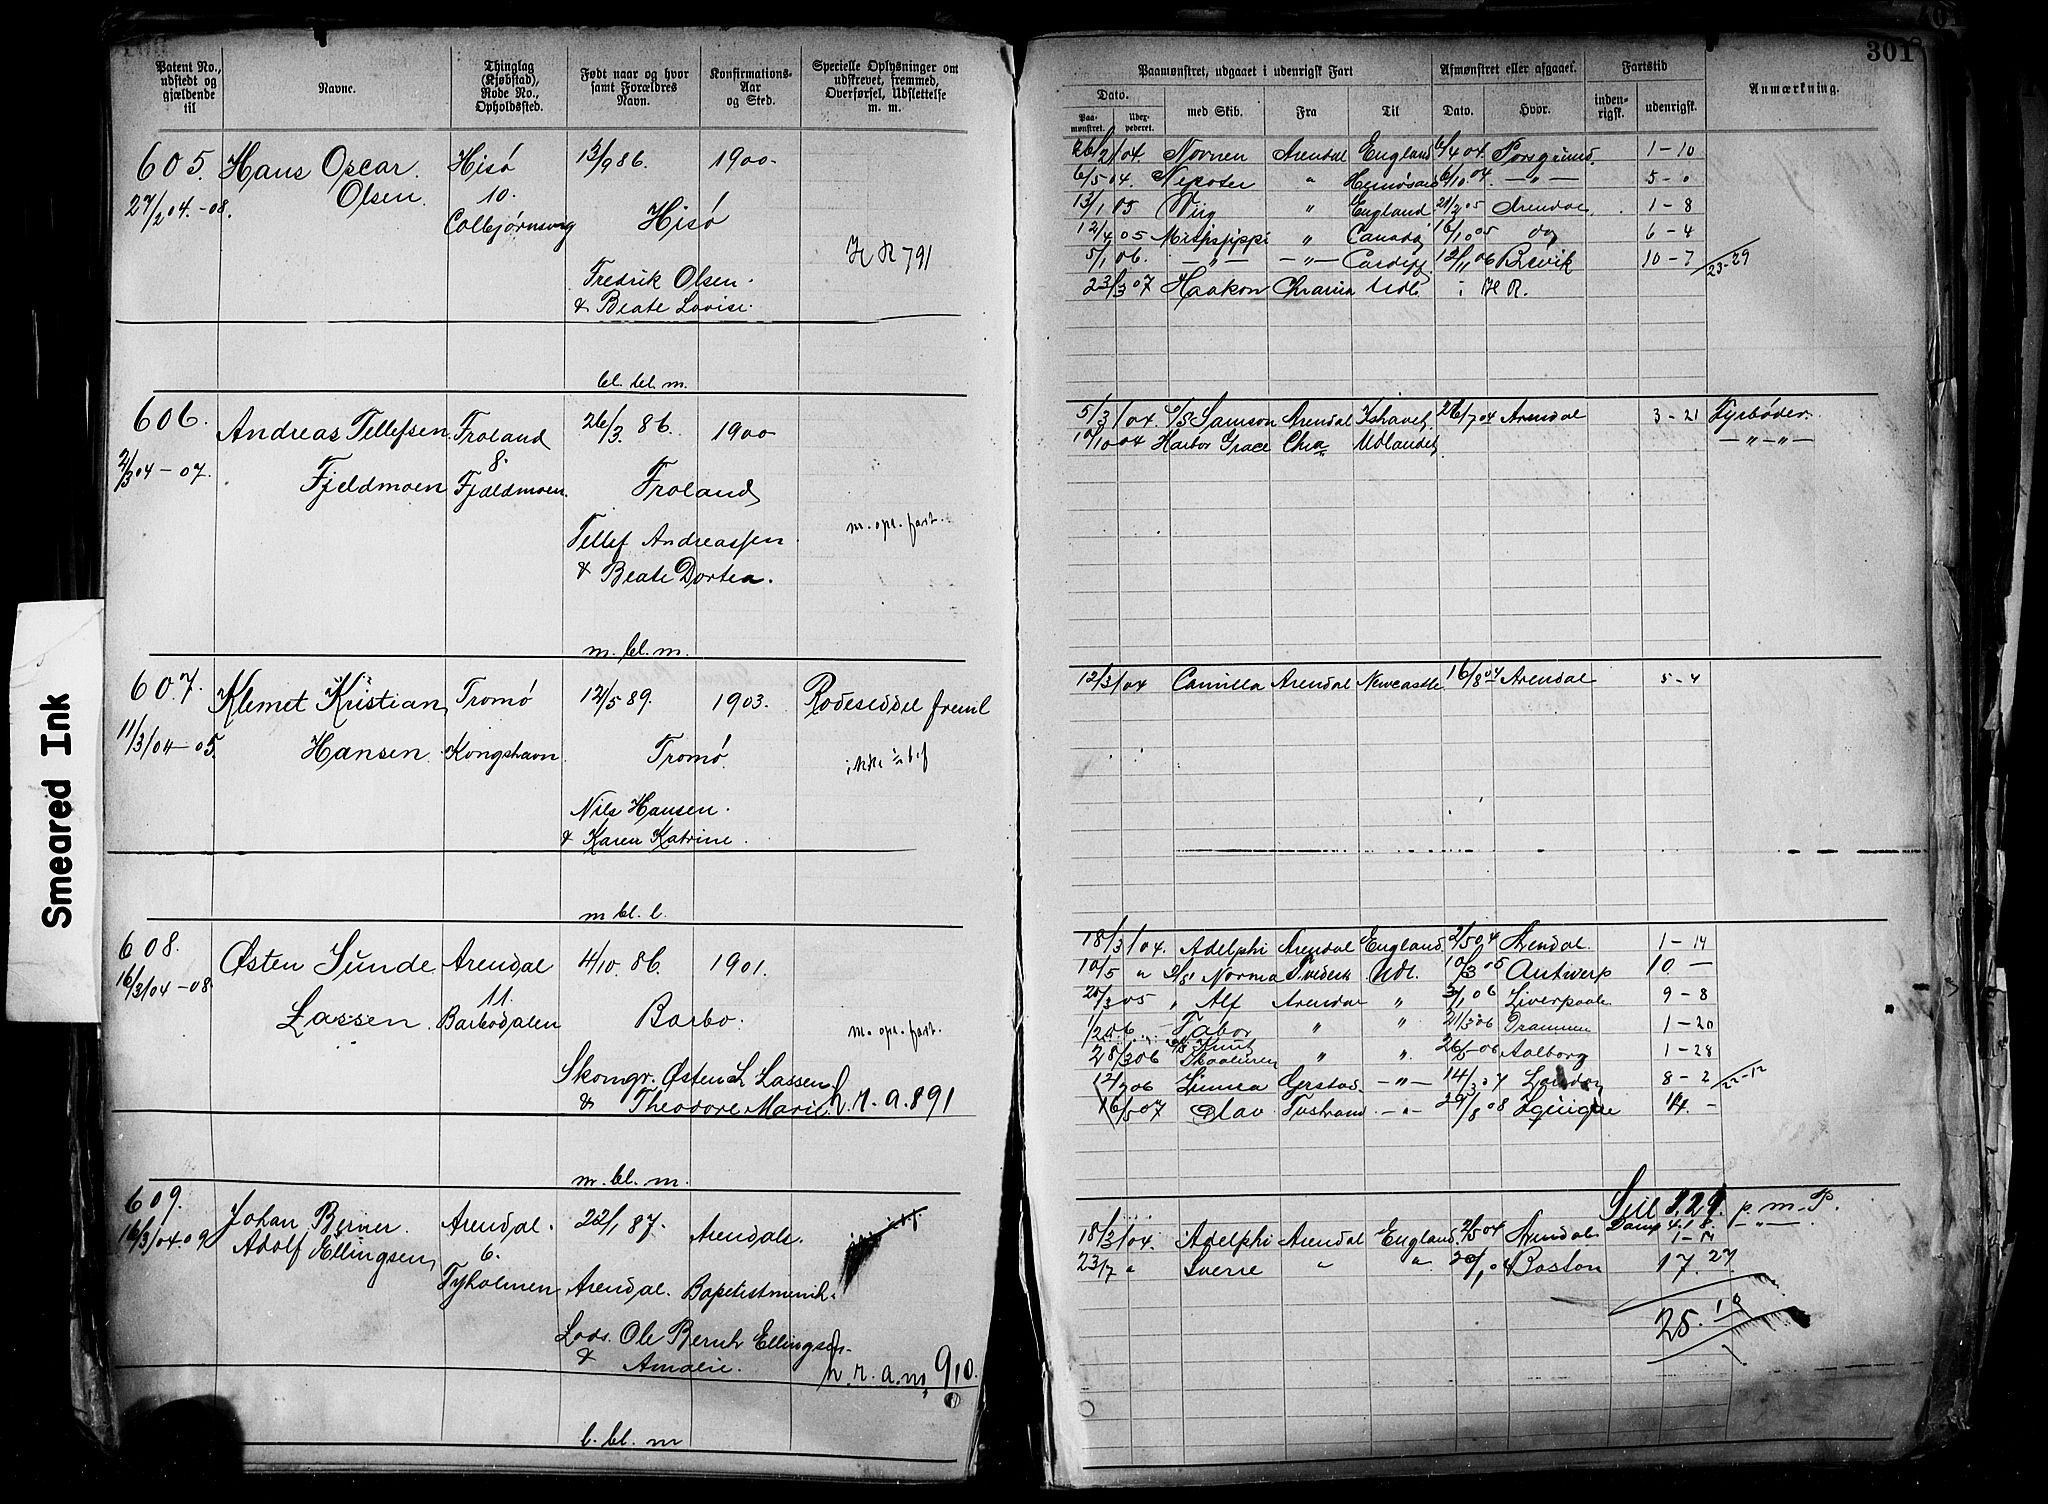 301
Patent No., udstedt og gjældende til
Navne.
Thinglag (Kjøbstad), Rode No., Opholdssted.
Født naar og hvor samt Forældres Navn.
Konfirmations-Aar og Sted.
Specielle Oplysninger om udskrevet, fremmed, Overførsel, Udslettelse m. m.
Paamønstret, udgaaet i udenrigsk Fart
Afmønstret eller afgaaet.
Fartstid
Anmærkning.
Dato.
Paa-mønstret.
Udex-pederet.
med Skib.
Fra
Til
Dato.
Hvor.
inden-rigsk.
udenrigsk.
605. Hans Oscar Hisø 13/9 86. 1900.
Olsen. 10.
27/2 04.-08. Colbjørnsvig Hisø
H R 791
Fredrik Olsen.
& Beate Lovise.
bl. bl. m.
26/2 04 Nornen Arendal England 6/4 04 Porsgrund. 1-10
6/5 04. Nepoter " 6/10 04. -"- 5-0
13/1 05 " England 21/2 05 Arendal 1-8
12/4 05 Missisippi " Canada 16/10 05 do 6-4
5/1 06. -"- -"- Cardiff 12/11 06 Brevik 10-7 23-29
23/3 07 Haakon Chrania Udl. i H R.
606. Andreas Tellefsen Froland 26/3. 86. 1900
2/3 04-07. Fjeldmoen 8. Fjeldmoen. Froland
m. opr. fart.
Tellef Andreassen
& Beate Dortea.
m. bl. m.
5/3 04. S/S Samson Arendal Ishavet 26/7 04 Arendal 3-21 Fyrbøder.
10/10 04 Harbor Grace Chra Udlandet -"-"-
607. Klemet Kristian Tromø 12/5 89. 1903. Rodeseddel freml
11/3 04-05. Hansen Kongshavn Tromø. ikke
Nils Hansen.
& Karen Katrine.
m bl. l.
12/3 04 Camilla Arendal Newcastle 16/8 04 Arendal 5-4
608. Østen Sunde Arendal 4/10. 86. 1901.
16/3 04-08. Lassen. 11. Barbodalen Barbo. m. opr. fart.
Skomgr. Østen L Lassen
& Theodore Marie h. r. a. 891
m. bl. m.
18/3 04. Adelphi Arendal England. 2/5 04 Arendal. 1-14
10/5 " S/S Norma Tvedestr Udl. 10/3 05 Antwerp 10-
20/3 05 " Alf Arendal " 3/1 06 Liverpoole 9-8
1/2 06 Tabor " " 21/3 06 Drammen 1-20
28/3 06 Knut Skaaluren " " 26/5 06 Aalborg 1-28
12/7 06 Linnea Gerstad -"- 14/3 07 London 8-2 22-12
16/5 07 Olav Tvstrand -"- 29/8 08 Iquique 14.-
609. Johan Berner Arendal. 22/1 87. Arendal.
16/3 04.09 Adolf Ellingsen 6.
Tyholmen Arendal. Baptistmenih.
Lods. Ole Bernt Ellingsen
& Amalie. h. r. a. no 910.
b. bl. m
Seil 129 p. m. P.
Damp 4.18. -"-
18/3 04. Adelphi Arendal England. 2/5 04 Arendal 1-14
23/7 " Sverre " " Boston 17. 27
25. 10
Smeared Ink